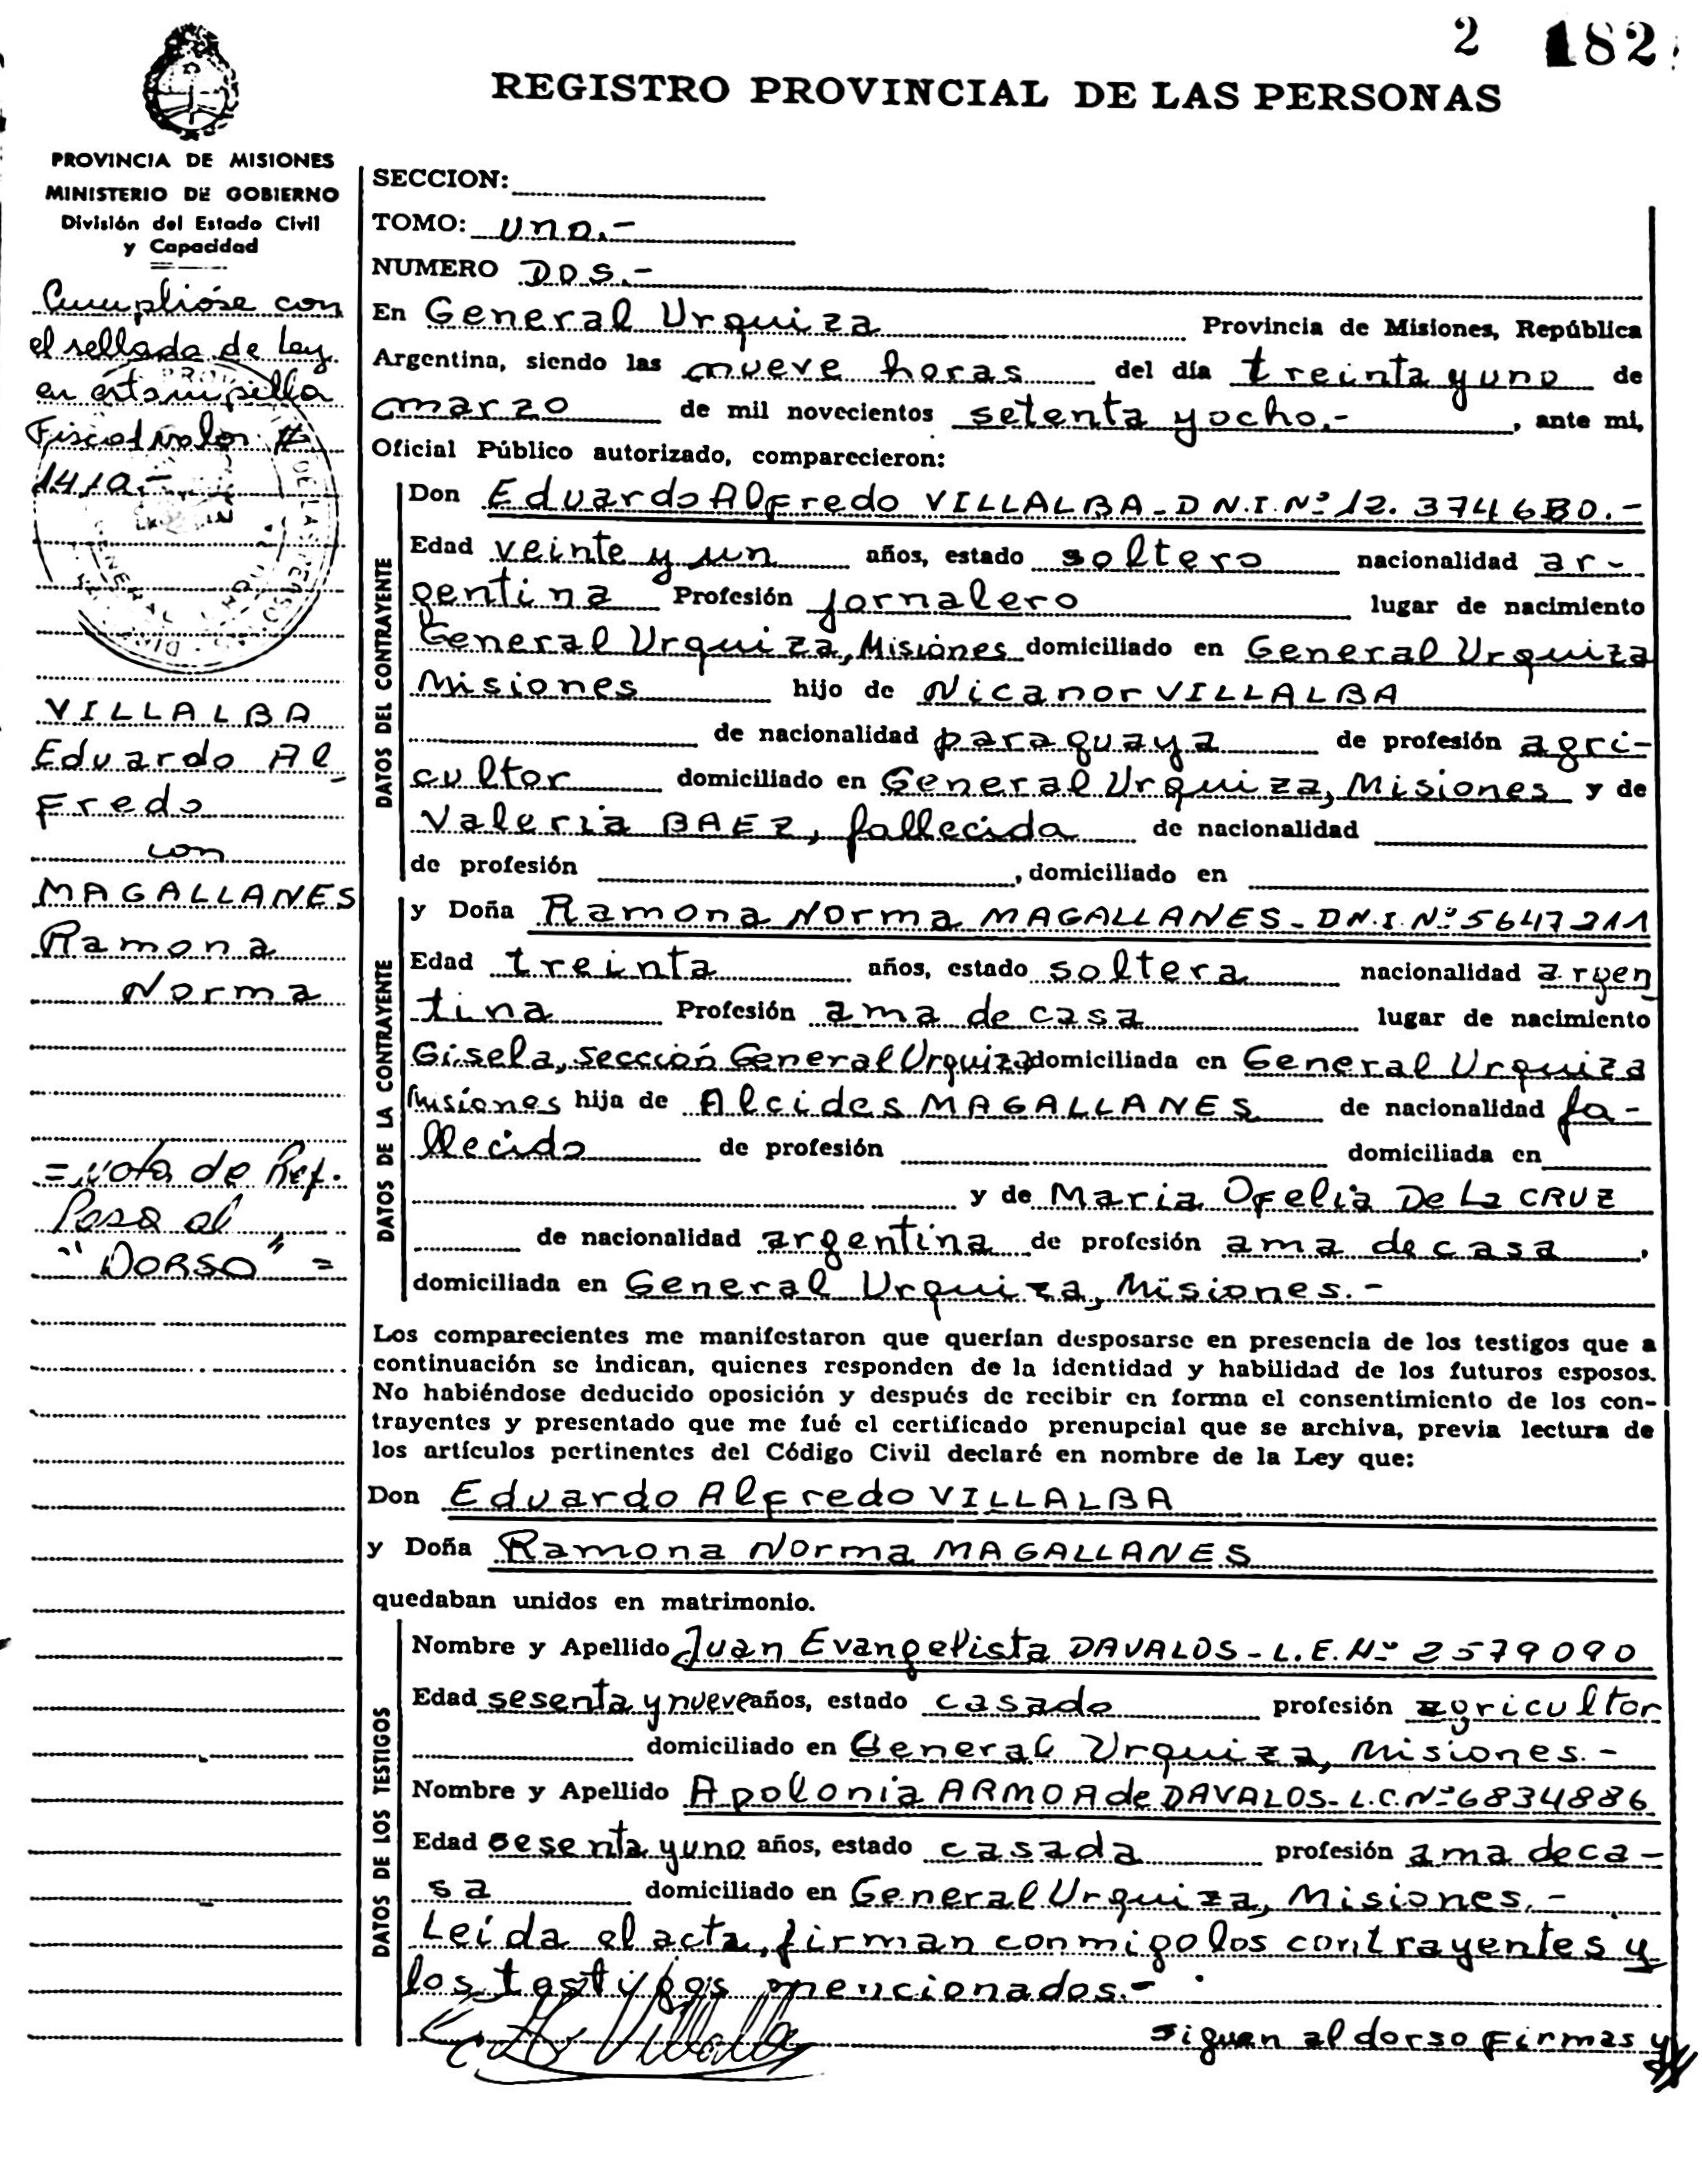 2 182
REGISTRO PROVINCIAL DE LAS PERSONAS
PROVINCIA DE MISIONES
MINISTERIO DE GOBIERNO
División del Estado Civil
y Capacidad
Cumplióse con
el sellado de ley
en estampilla
Fiscal valor $
1410.-
VILLALBA
Eduardo Al-
fredo
con
MAGALLANES
Ramona
Norma
= Nota de Ref.
Pasa al
"DORSO" =
SECCION:
TOMO: uno.-
NUMERO DOS.-
En General Urquiza Provincia de Misiones, República
Argentina, siendo las nueve horas del día treinta y uno de
marzo de mil novecientos setenta y ocho.- , ante mi,
Oficial Público autorizado, comparecieron:
DATOS DEL CONTRAYENTE
Don Eduardo Alfredo VILLALBA - D N.I. Nº 12.374680.-
Edad veinte y un años, estado soltero nacionalidad ar-
gentina Profesión jornalero lugar de nacimiento
General Urquiza, Misiones domiciliado en General Urquiza
Misiones hijo de Nicanor VILLALBA
de nacionalidad paraguaya de profesión agri-
cultor domiciliado en General Urquiza, Misiones y de
Valeria BAEZ, fallecida de nacionalidad
de profesión , domiciliado en
DATOS DE LA CONTRAYENTE
y Doña Ramona Norma MAGALLANES - D N.I. Nº 5647211
Edad treinta años, estado soltera nacionalidad argen
tina Profesión ama de casa lugar de nacimiento
Gisela, sección General Urquiza domiciliada en General Urquiza
Misiones hija de Alcides MAGALLANES de nacionalidad fa-
llecido de profesión domiciliada en
y de Maria Ofelia De La CRUZ
de nacionalidad argentina de profesión ama de casa ,
domiciliada en General Urquiza, Misiones.-
Los comparecientes me manifestaron que querían desposarse en presencia de los testigos que a
continuación se indican, quienes responden de la identidad y habilidad de los futuros esposos.
No habiéndose deducido oposición y después de recibir en forma el consentimiento de los con-
trayentes y presentado que me fué el certificado prenupcial que se archiva, previa lectura de
los artículos pertinentes del Código Civil declaré en nombre de la Ley que:
Don Eduardo Alfredo VILLALBA
y Doña Ramona Norma MAGALLANES
quedaban unidos en matrimonio.
DATOS DE LOS TESTIGOS
Nombre y Apellido Juan Evangelista DAVALOS - L.E. Nº 2579090
Edad sesenta y nueve años, estado casado profesión agricultor
domiciliado en General Urquiza, Misiones.-
Nombre y Apellido Apolonia ARMOA de DAVALOS - L.C. Nº 6834886
Edad sesenta y uno años, estado casada profesión ama de ca-
sa domiciliado en General Urquiza, Misiones.-
Leída el acta, firman conmigo los contrayentes y
los testigos mencionados.-
siguen al dorso firmas y